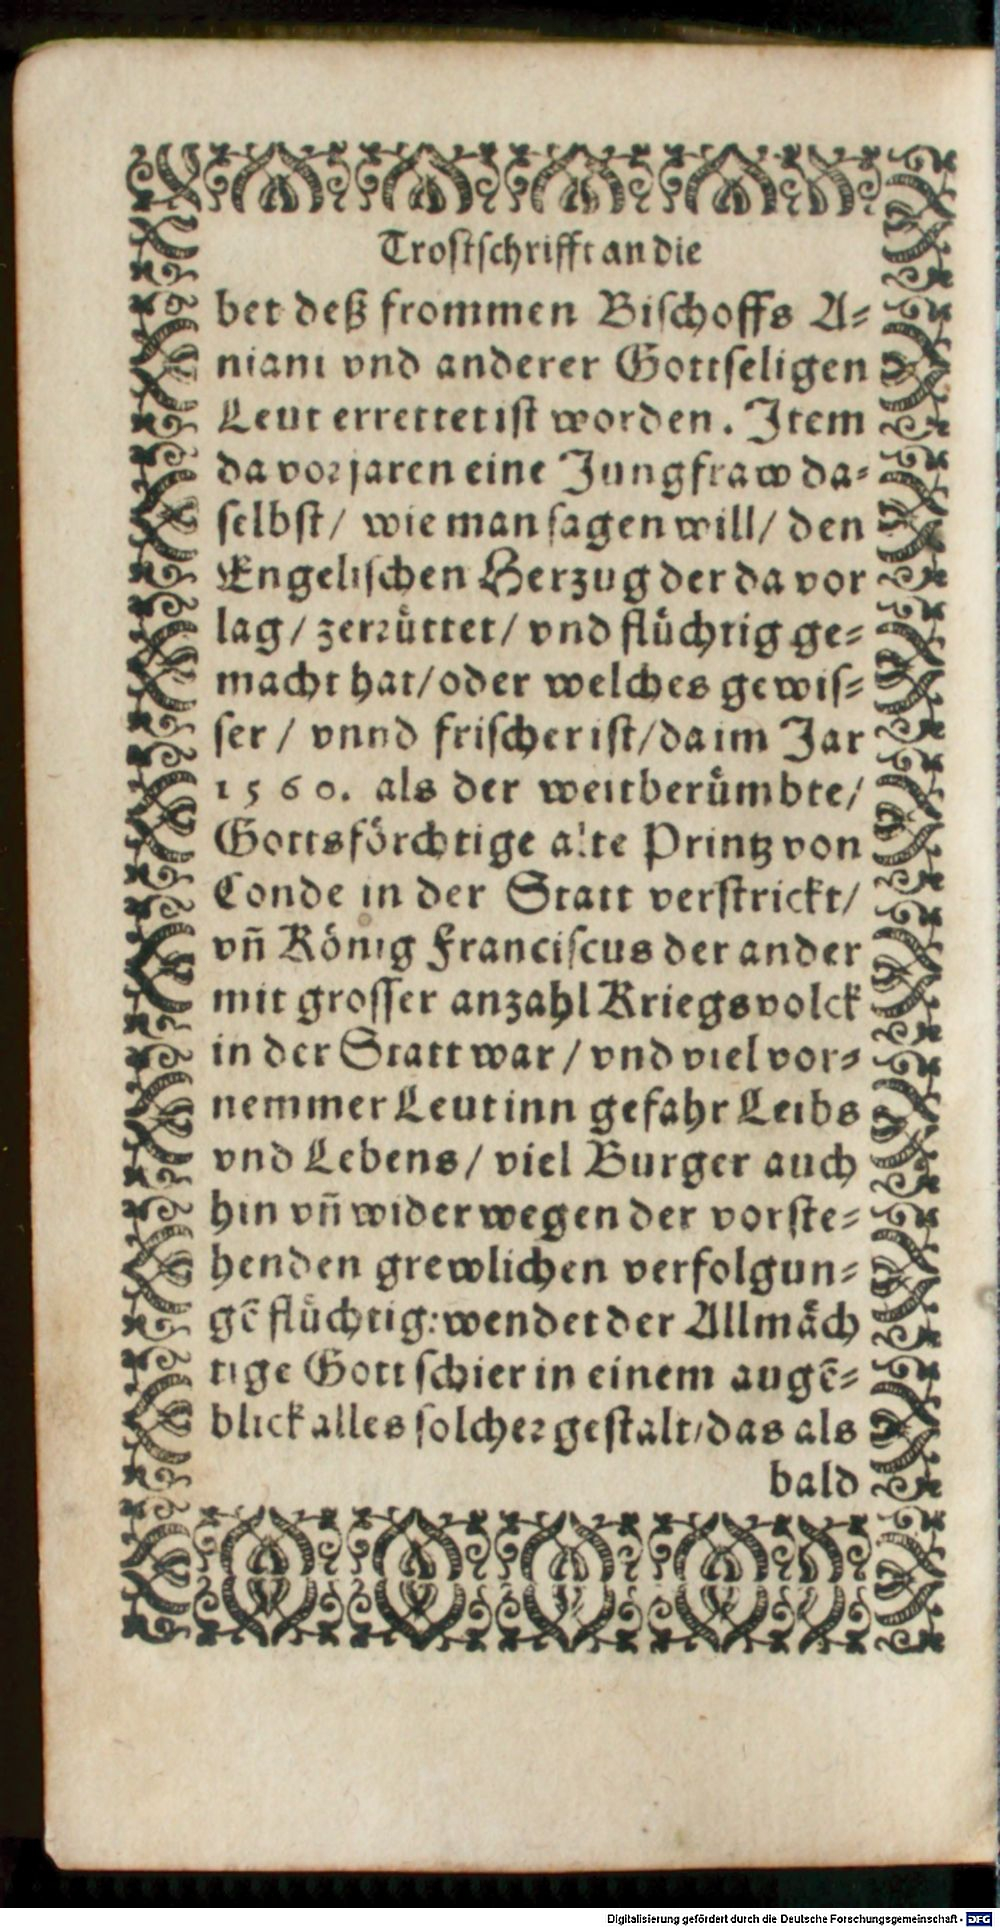 Trostschrifft an die
bet deß frommen Bischoffs A⸗
niani vnd anderer Gottseligen
Leut errettet ist worden. Item
da vor jaren eine Jungfraw da⸗
selbst/ wie man sagen will/ den
Engelischen Herzug der da vor
lag/ zerrüttet/ vnd flüchtig ge⸗
macht hat/ oder welches gewis⸗
ser/ vnnd frischer ist/ da im Jar
1560. als der weitberümbte/
Gottsförchtige alte Printz von
Conde in der Statt verstrickt/
vñ König Franciscus der ander
mit grosser anzahl Kriegsvolck
in der Statt war/ vnd viel vor⸗
nemmer Leut inn gefahr Leibs
vnd Lebens/ viel Burger auch
hin vñ wider wegen der vorste⸗
henden grewlichen verfolgun⸗
gẽ flüchtig: wendet der Allmäch
tige Gott schier in einem augẽ⸗
blick alles solcher gestalt/ das als
bald
Digitalisierung gefördert durch die Deutsche Forschungsgemeinschaft - DFG